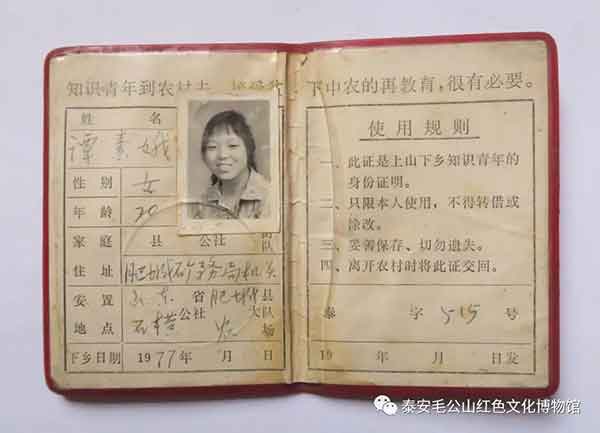 知识青年到农村去，接受贫下中农的再教育，很有必要。
姓 名
谭素娥
性 别 女
年 龄 20
家 庭 县 公社 队
住 址 肥城矿务局机关
安 置 山东省肥城县
地 点 石横公社 大队 场
下乡日期 1977年 月 日
使用规则
一、此证是上山下乡知识青年的身份证明。
二、只限本人使用，不得转借或涂改。
三、妥善保存、切勿遗失。
四、离开农村时将此证交回。
泰 字 515 号
19 年 月 日发
泰安毛公山红色文化博物馆